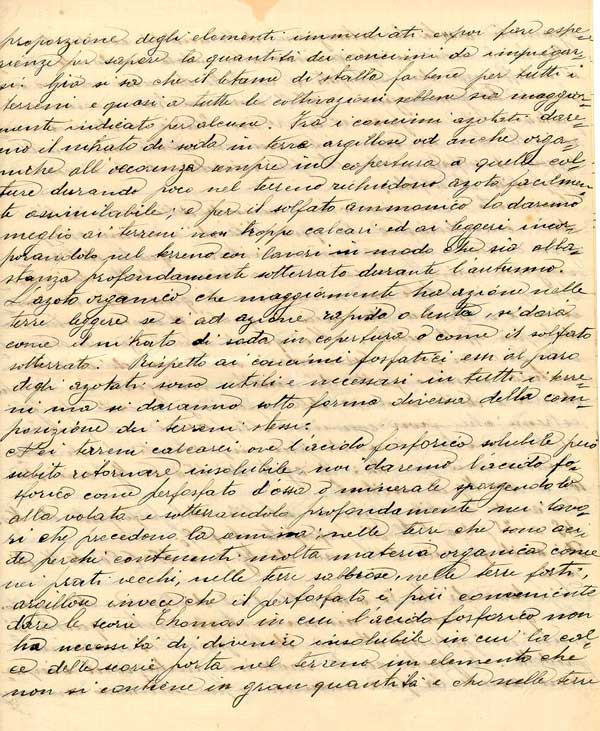 proporzione degli elementi immediati e poi fare espe-
rienze per sapere la quantità dei concimi da impiegar-
si. Già si sa che il letame di stalla fa bene per tutti i
terreni e quasi a tutte le coltivazioni sebbene sia maggior-
mente indicato per alcune. Tra i concimi azotati dare-
mo il nitrato di soda in terre argillose od anche orga-
niche all'occorenza sempre in copertura a quelle col-
ture durando poco nel terreno richiedono azoto facilmen-
te assimilabile; e per il solfato ammonico lo daremo
meglio ai terreni non troppo calcari ed ai leggeri incor-
porandolo nel terreno coi lavori in modo che sia abba-
stanza profondamente sotterrato durante l'autunno.
L'azoto organico che maggiormente ha azione nelle
terre leggere se è ad azione rapida o lenta, si darà
come il nitrato di soda in copertura o come il solfato
sotterrato. Rispetto ai concimi fosfatici essi al paro
degli azotati sono utili e necessari in tutti i terre-
ni ma si daranno sotto forma diversa della com-
posizione dei terreni stessi.
Nei terreni calcarei ove l'acido fosforico solubile può
subito ritornare insolubile, noi daremo l'acido fo-
sforico come perfosfato d'ossa o minerale spargendolo
alla volata e sotterrandolo profondamente nei lavo-
ri che precedono la semina; nelle terre che sono aci-
de perchè contenenti molta materia organica come
nei prati vecchi, nelle terre sabbiose, nelle terre forti,
argillose invece che il perfosfato è più conveniente
dare le scorie Thomas in cui l'acido fosforico non
ha necessità di divenire insolubile in cui la cal-
ce delle scorie porta nel terreno un elemento che
non si contiene in gran quantità e che nelle terre